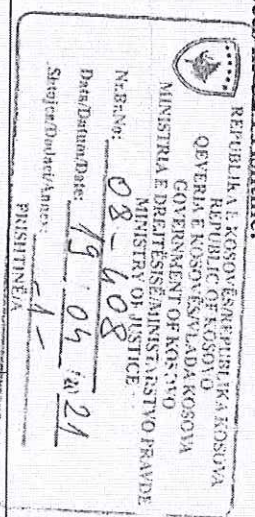 REPUBLIKA E KOSOVËS/REPUBLIKA KOSOVA
REPUBLIC OF KOSOVO
QEVERIA E KOSOVËS/VLADA KOSOVA
GOVERNMENT OF KOSOVO
MINISTRIA E DREJTËSISË/MINISTARSTVO PRAVDE
MINISTRY OF JUSTICE
Nr.Br.No: 08-408
Data/Datum/Date: 19 04 (20) 21
Shtojca/Dodaci/Annex: -1-
PRISHTINË/A